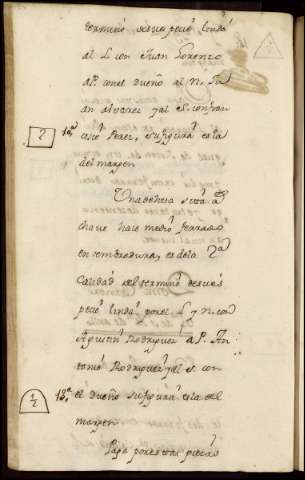 termino desus pecs. linda
al L con Juan Lorenzo
al P. con el dueño al N. Ju
an Alvarez y al S. con Fran
2 18ª cisco Perez, su figura es la
del margen
Una dehesa sita a
chave hace medio ferrado
en sembradura, es de la 2ª
Calidad del termino desus
pecs. linda por el L y N. con
Agustin Rodriguez al P. An
tonio Rodriguez y al S. con
1/2 19ª el dueño su figura es la del
margen
Paga por estas piezas